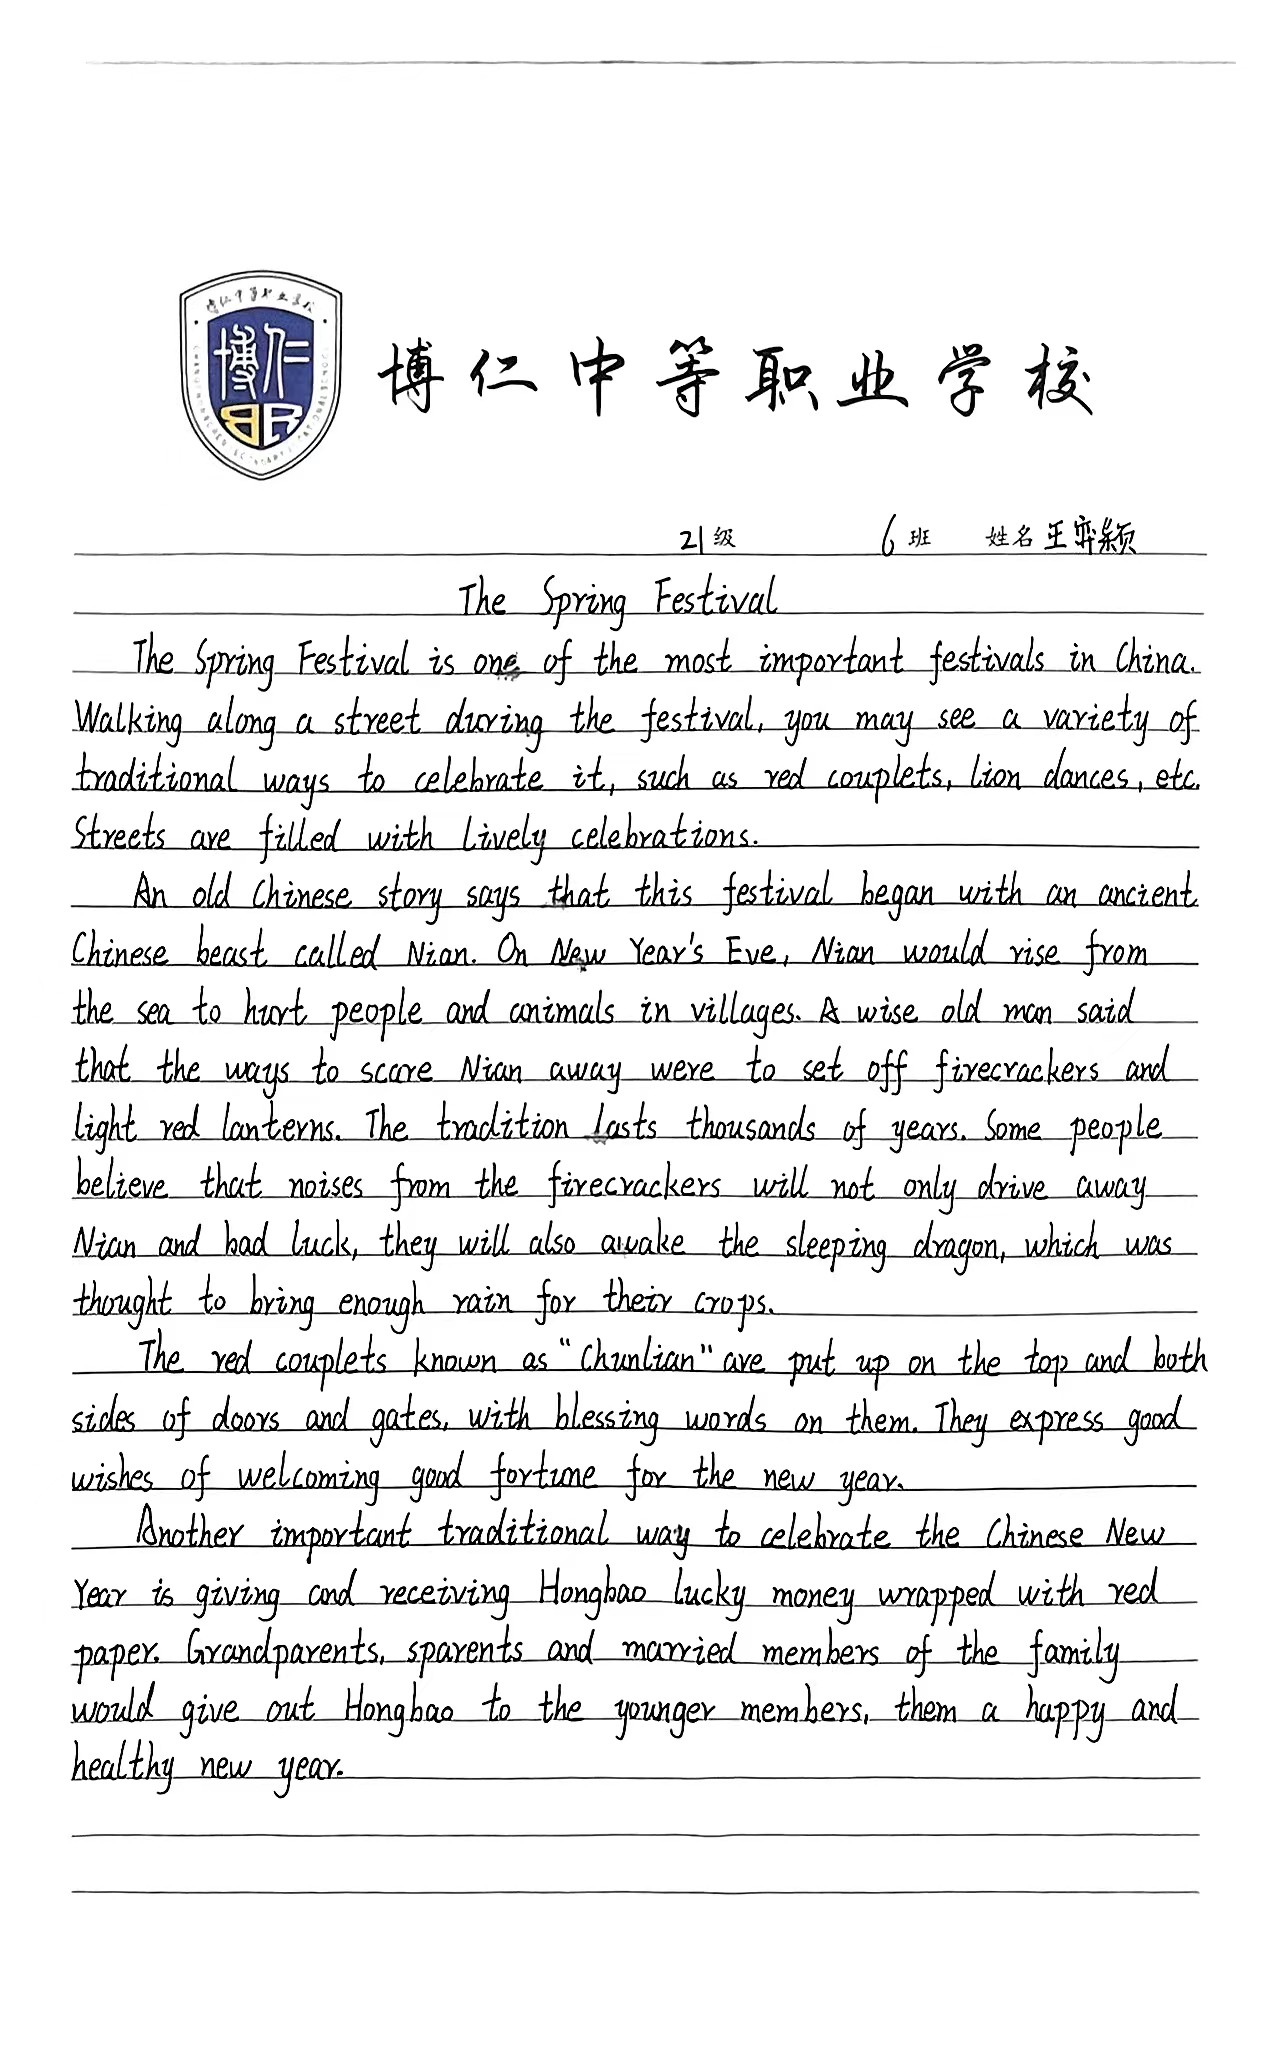 博仁中等职业学校
博仁
BR
博仁中等职业学校
21级 6班 姓名王弈颖
The Spring Festival
The Spring Festival is one of the most important festivals in China.
Walking along a street during the festival, you may see a variety of
traditional ways to celebrate it, such as red couplets, lion dances, etc.
Streets are filled with lively celebrations.
An old Chinese story says that this festival began with an ancient
Chinese beast called Nian. On New Year's Eve, Nian would rise from
the sea to hurt people and animals in villages. A wise old man said
that the ways to scare Nian away were to set off firecrackers and
light red lanterns. The tradition lasts thousands of years. Some people
believe that noises from the firecrackers will not only drive away
Nian and bad luck, they will also awake the sleeping dragon, which was
thought to bring enough rain for their crops.
The red couplets known as "Chunlian" are put up on the top and both
sides of doors and gates, with blessing words on them. They express good
wishes of welcoming good fortune for the new year.
Another important traditional way to celebrate the Chinese New
Year is giving and receiving Hongbao lucky money wrapped with red
paper. Grandparents, sparents and married members of the family
would give out Hongbao to the younger members, them a happy and
healthy new year.